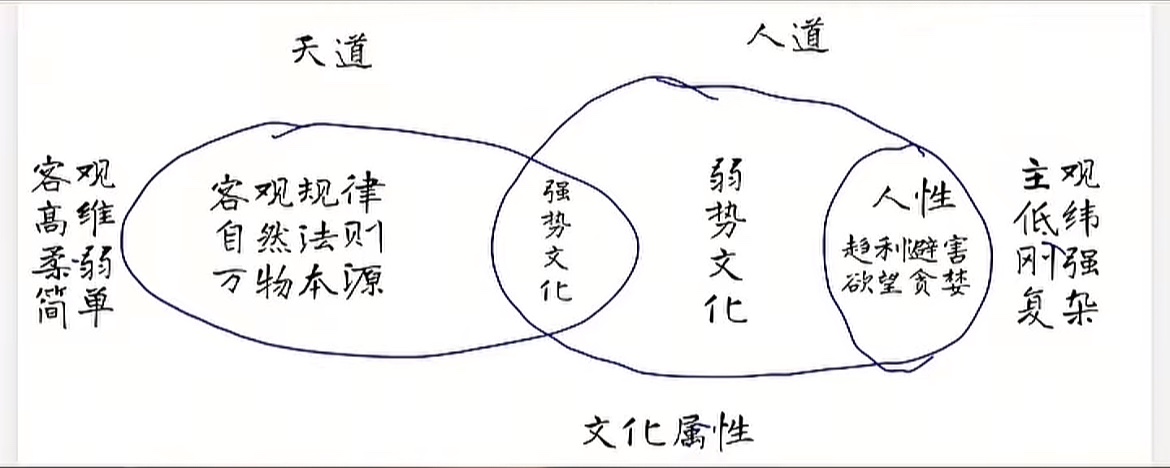 天道
人道
客观
高维
柔弱
简单
客观规律
自然法则
万物本源
强势文化
弱势文化
人性
趋利避害
欲望贪婪
主观
低纬
刚强
复杂
文化属性